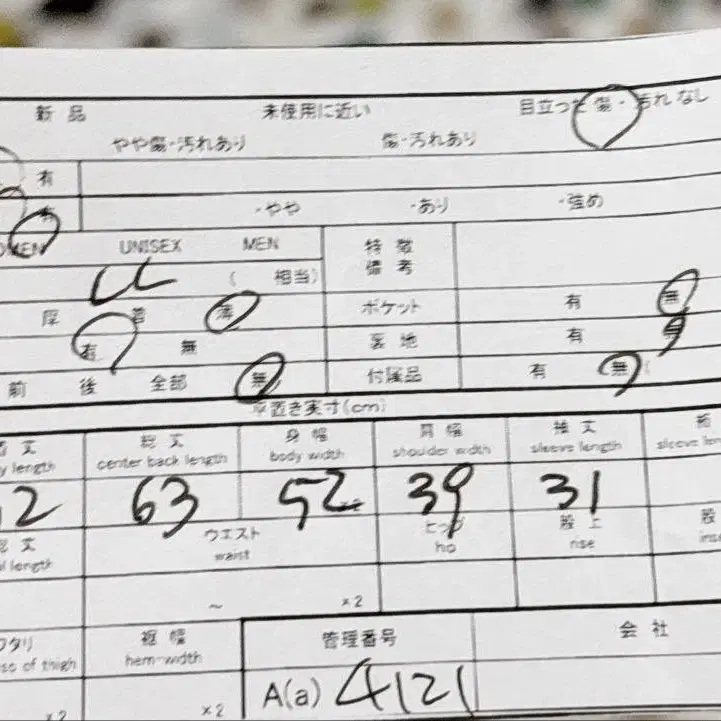 新品 未使用に近い 目立った傷・汚れなし
やや傷・汚れあり 傷・汚れあり
有
有 ・やや ・あり ・強め
OMEN UNISEX MEN 特徴
備考
( 相当)
厚 普 薄 ポケット 有 無
有 無 裏地 有 無
前 後 全部 無 付属品 有 無 (
平置き実寸(cm)
着丈 総丈 身幅 肩幅 袖丈
y length center back length body width shoulder width sleeve length sleeve len
2 63 52 x2 39 31
総丈 ウエスト ヒップ 股上 股
l length waist hip rise inse
~ x2
ワタリ 裾幅 管理番号 会社
ss of thigh hem-width
x2 x2 A(a) 4121